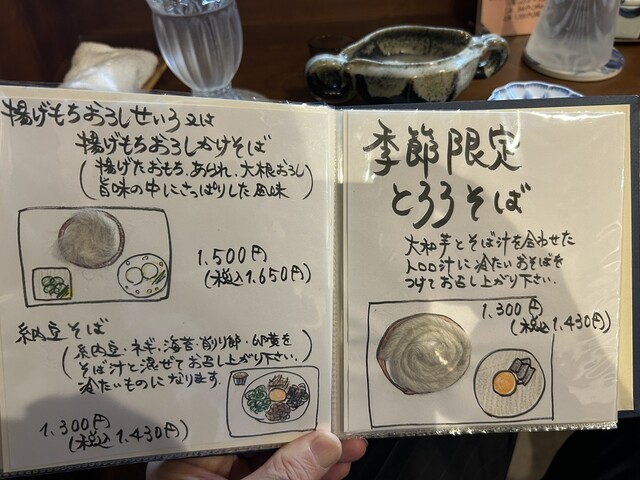 揚げもちおろしせいろ 又は
揚げもちおろしかけそば
(揚げたおもち、あられ、大根おろし
旨味の中にさっぱりした風味)
1.500円
(税込1.650円)
納豆そば
(納豆・ネギ・海苔・削り節・卵黄を
そば汁と混ぜてお召し上がり下さい。)
冷たいものになります。
1.300円
(税込1.430円)
季節限定
とろろそば
大和芋とそば汁を合わせた
トロロ汁に冷たいおそばを
つけてお召し上がり下さい。
1.300円
(税込1.430円)